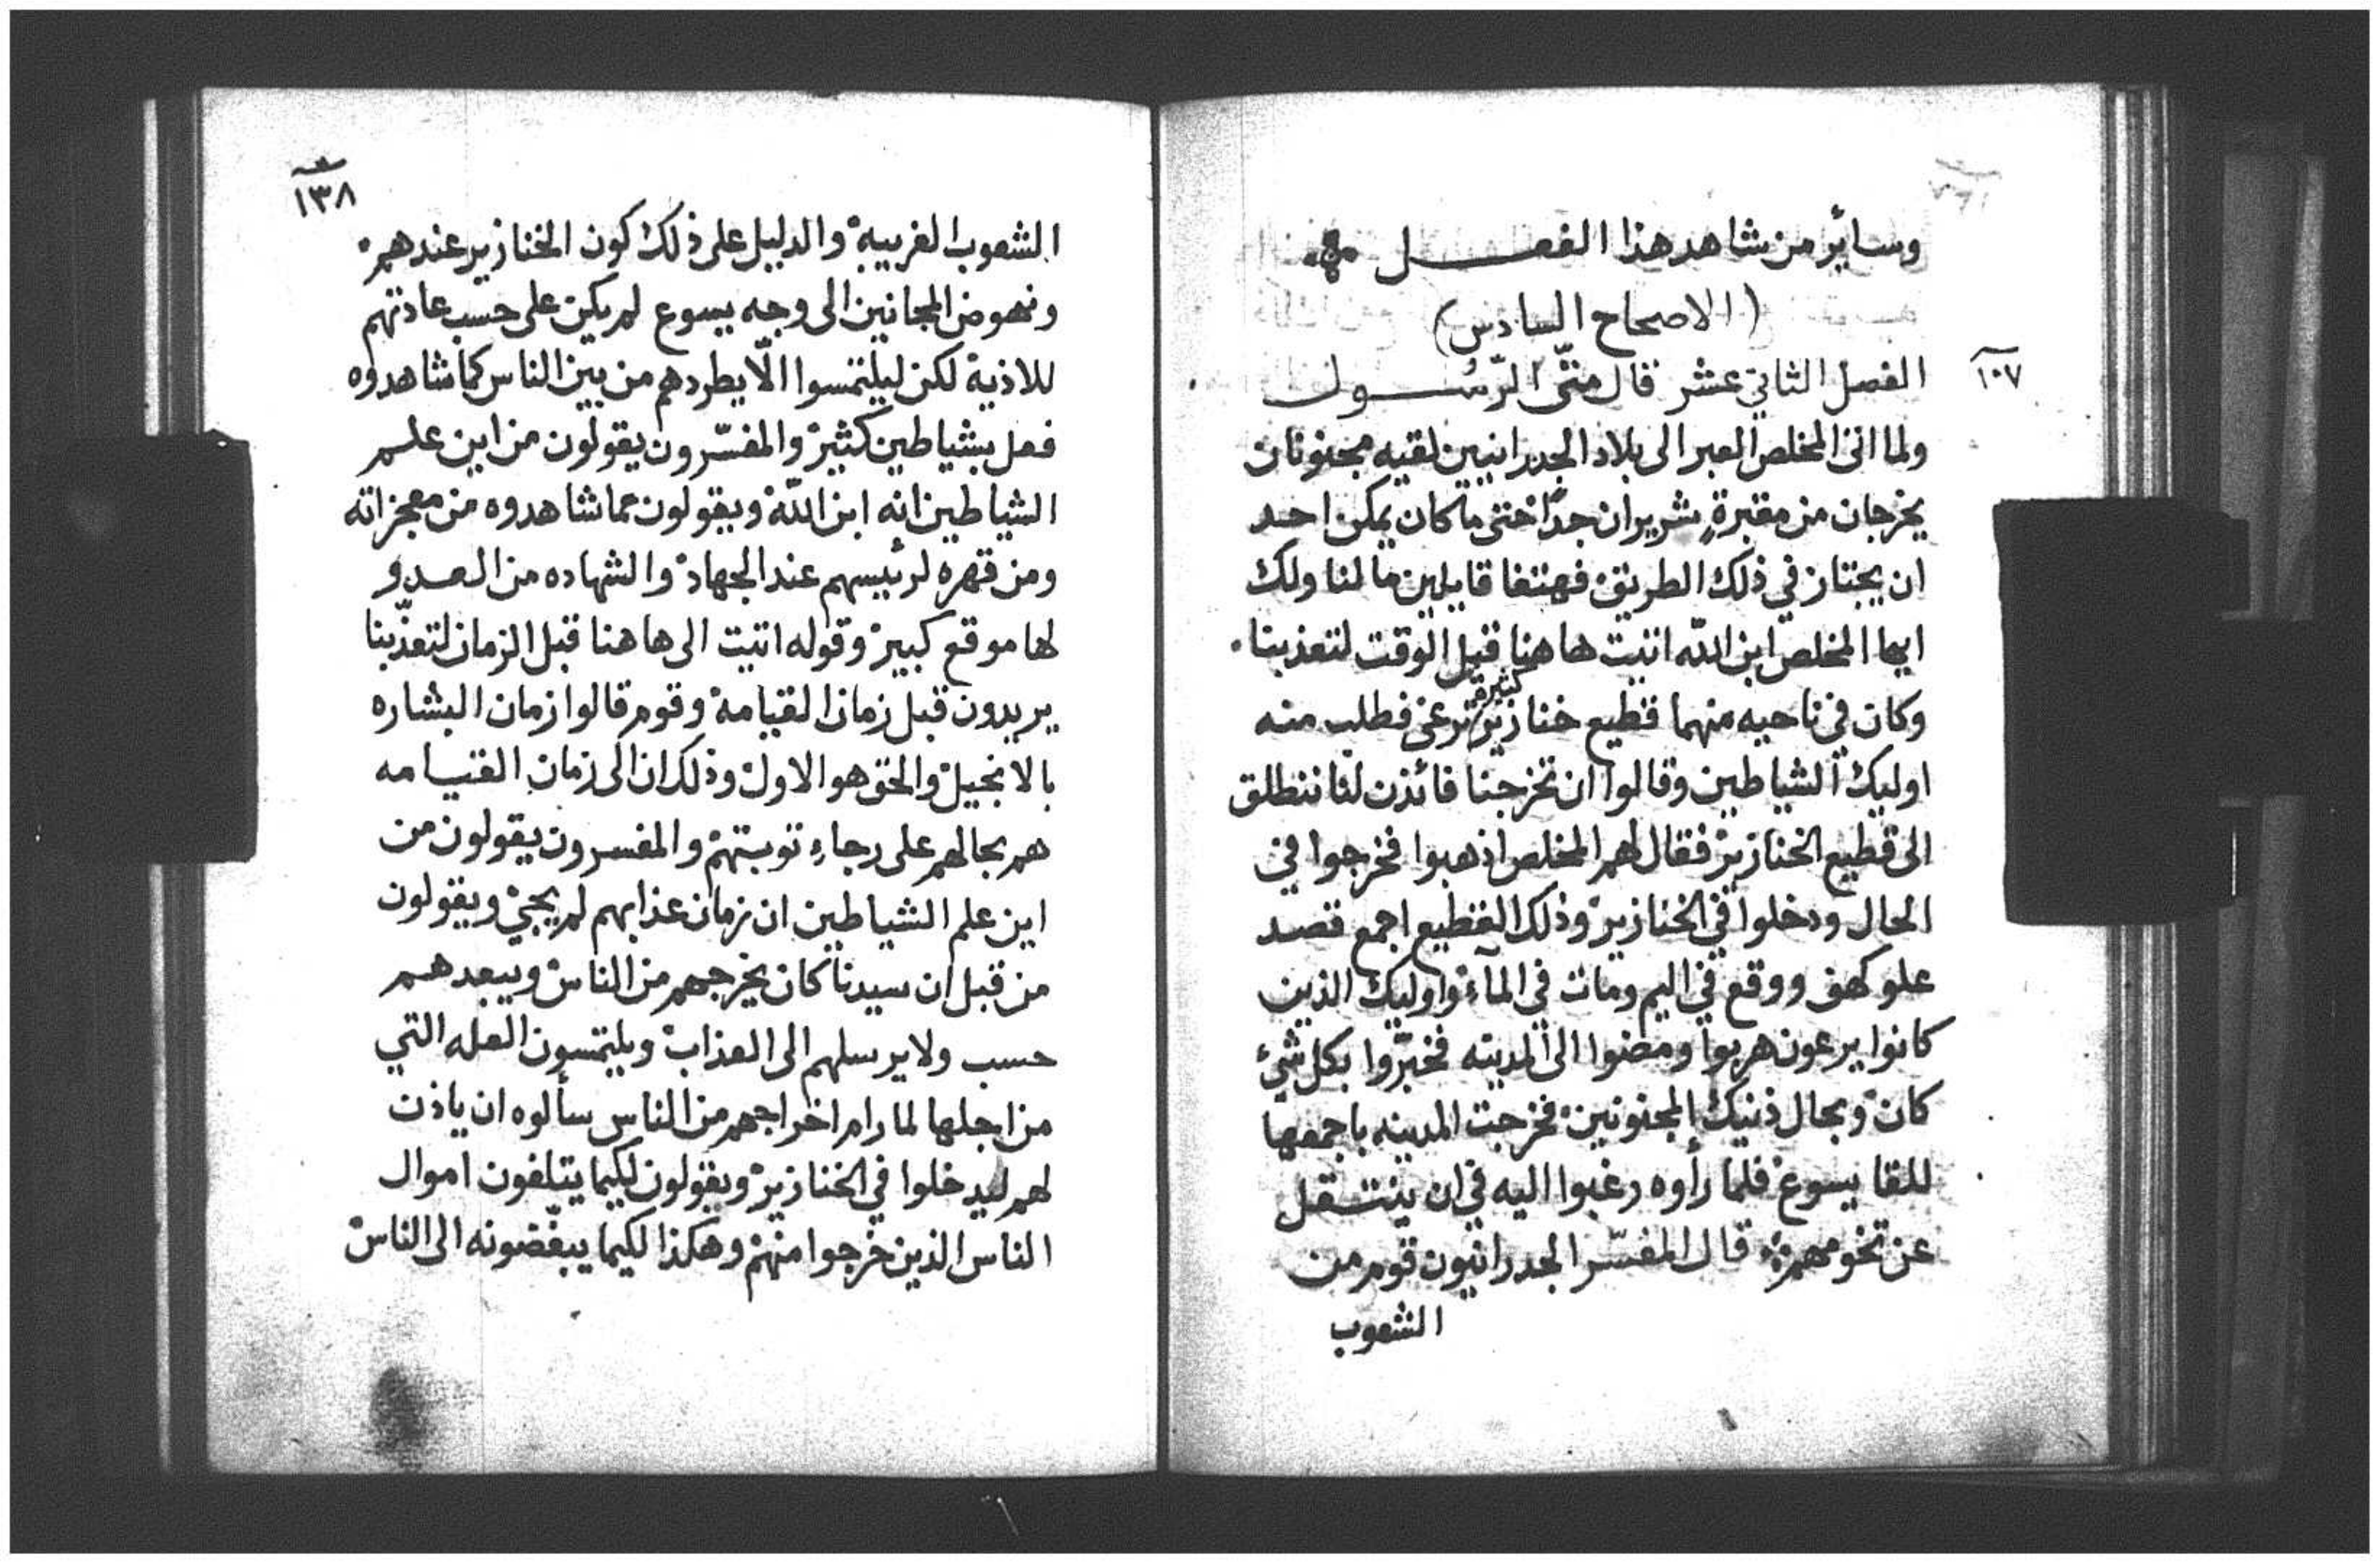 وسائر من شاهد هذا الفعل
(الاصحاح السادس)
١٠٧
الفصل الثاني عشر قال متّى الرّسول
ولما اتى المخلص العبر الى بلاد الجدرانيين لقيه مجنونان
يخرجان من مقبرةٍ شريران جدّا حتى ما كان يمكن احد
ان يجتاز في ذلك الطريق فهتفا قايلين ما لنا ولك
ايها المخلص ابن الله اتيت هاهنا قبل الوقت لتعذبنا
وكان في ناحيه منهما قطيع خنازير كثيرة ترعى فطلب منه
اوليك الشياطين وقالوا ان تخرجنا فائذن لنا ننطلق
الى قطيع الخنازير فقال لهم المخلص اذهبوا فخرجوا في
الحال ودخلوا في الخنازير وذلك القطيع اجمع قصد
علو كهف ووقع في اليم ومات في المآء واوليك الذين
كانوا يرعون هربوا ومضوا الى المدينه فخبّروا بكل شيء
كان وبحال ذنيك المجنونين فخرجت المدينه باجمعها
للقا يسوع فلما رأوه رغبوا اليه في ان ينتقل
عن تخومهم قال المفسّر الجدرانيون قوم من
الشعوب
١٣٨
الشعوب الغريبه والدليل على ذلك كون الخنازير عندهم
ونهوض المجانين الى وجه يسوع لم يكن على حسب عادتهم
للاذية لكن ليلتمسوا الّا يطردهم من بين الناس كما شاهدوه
فعل بشياطين كثير والمفسّرون يقولون من اين علم
الشياطين انه ابن اللّه ويقولون مما شاهدوه من معجزاته
ومن قهره لرئيسهم عند الجهاد والشهاده من العدو
لها موقع كبير وقوله اتيت الى هاهنا قبل الزمان لتعذّبنا
يريدون قبل زمان القيامة وقوم قالوا زمان البشاره
بالانجيل والحق هو الاول وذلك ان الى زمان القيامه
هم بحالهم على رجاءِ توبتهم والمفسرون يقولون من
اين علم الشياطين ان زمان عذابهم لم يجئ ويقولون
من قبل ان سيدنا كان يخرجهم من الناس ويبعدهم
حسب ولا يرسلهم الى العذاب ويلتمسون العله التي
من اجلها لما رام اخراجهم من الناس سألوه ان ياذن
لهم ليدخلوا في الخنازير ويقولون لكيما يتلفون اموال
الناس الذين خرجوا منهم وهكذا لكيما يبغّضونه الى الناس